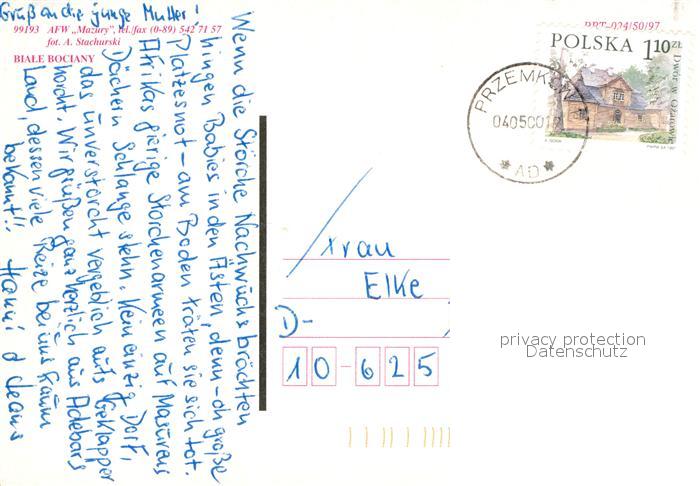 Gruß an die junge Mutter!
99193 AFW „Mazury", tel./fax (0-89) 542 71 57
fot. A. Stachurski
BIAŁE BOCIANY
Wenn die Störche Nachwuchs brächten
hingen Babies in den Ästen, denn - oh große
Platzesnot - am Boden träten sie sich tot.
Afrikas gierige Storchenarmeen auf Masurens
Dächern Schlange stehn. Kein einzig Dorf,
das unverstörcht vergeblich aufs Geklapper
horcht. Wir grüßen ganz herzlich aus Adebars
Land, dessen viele Reize bei uns kaum
bekannt!! Hanni &
PRT-024/50/97
POLSKA 1,10 ZŁ
Dwór w Ożarowie
PRZEMKÓW
040500
AD
Frau
Elke
D-
10-625
privacy protection
Datenschutz